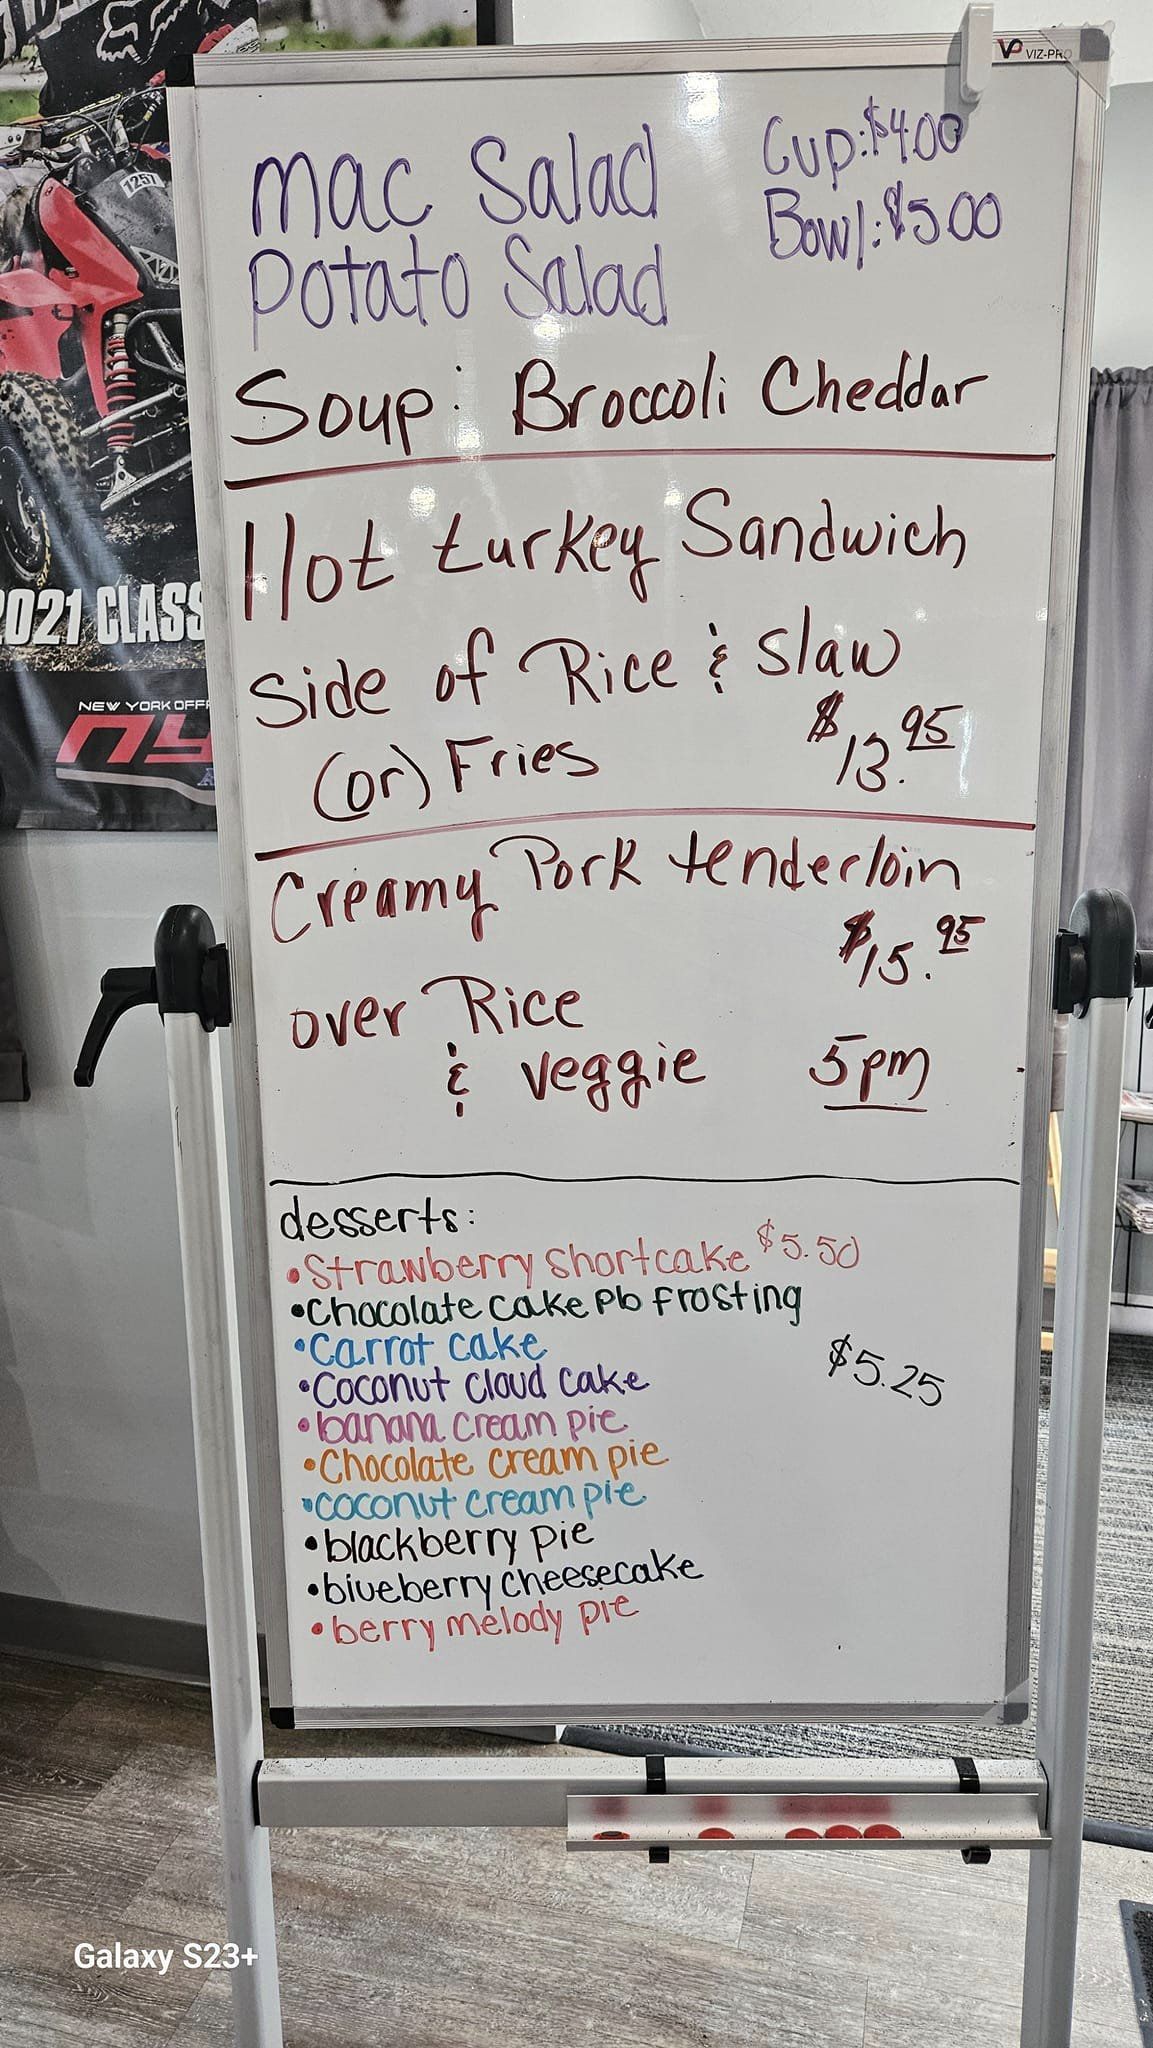 VIZ-PRO
mac Salad
Cup:$4.00
Potato Salad
Bowl:$5.00
Soup: Broccoli Cheddar
Hot turkey Sandwich
Side of Rice & slaw
(or) Fries
$13.95
Creamy Pork tenderloin
$15.95
over Rice
& veggie
5pm
desserts:
•Strawberry shortcake $5.50
•Chocolate cake pb frosting
•Carrot cake
•Coconut cloud cake
$5.25
•banana cream pie
•Chocolate cream pie
•coconut cream pie
•blackberry pie
•blueberry cheesecake
•berry melody pie
1257
2021 CLASS
NEW YORK OFF
NY
Galaxy S23+